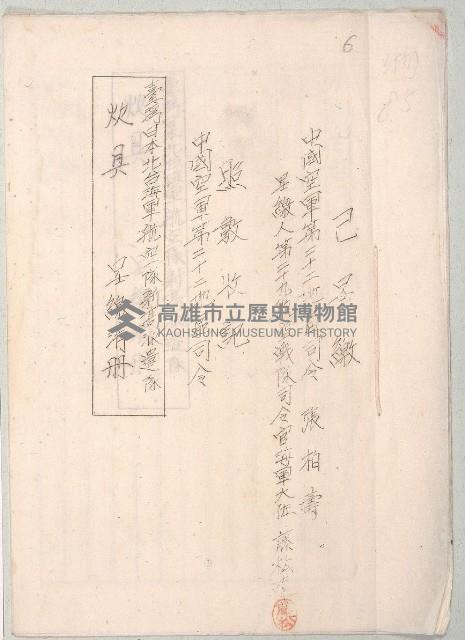 6
已呈繳
中國空軍第二十二地區司令 張柏壽
呈繳人第二十九航空戰隊司令官海軍大佐 藤松
照數收訖
中國空軍第二十二地區司令
臺灣日本北台海軍航空隊新竹派遣隊
炊具 呈繳清冊
高雄市立歷史博物館
KAOHSIUNG MUSEUM OF HISTORY